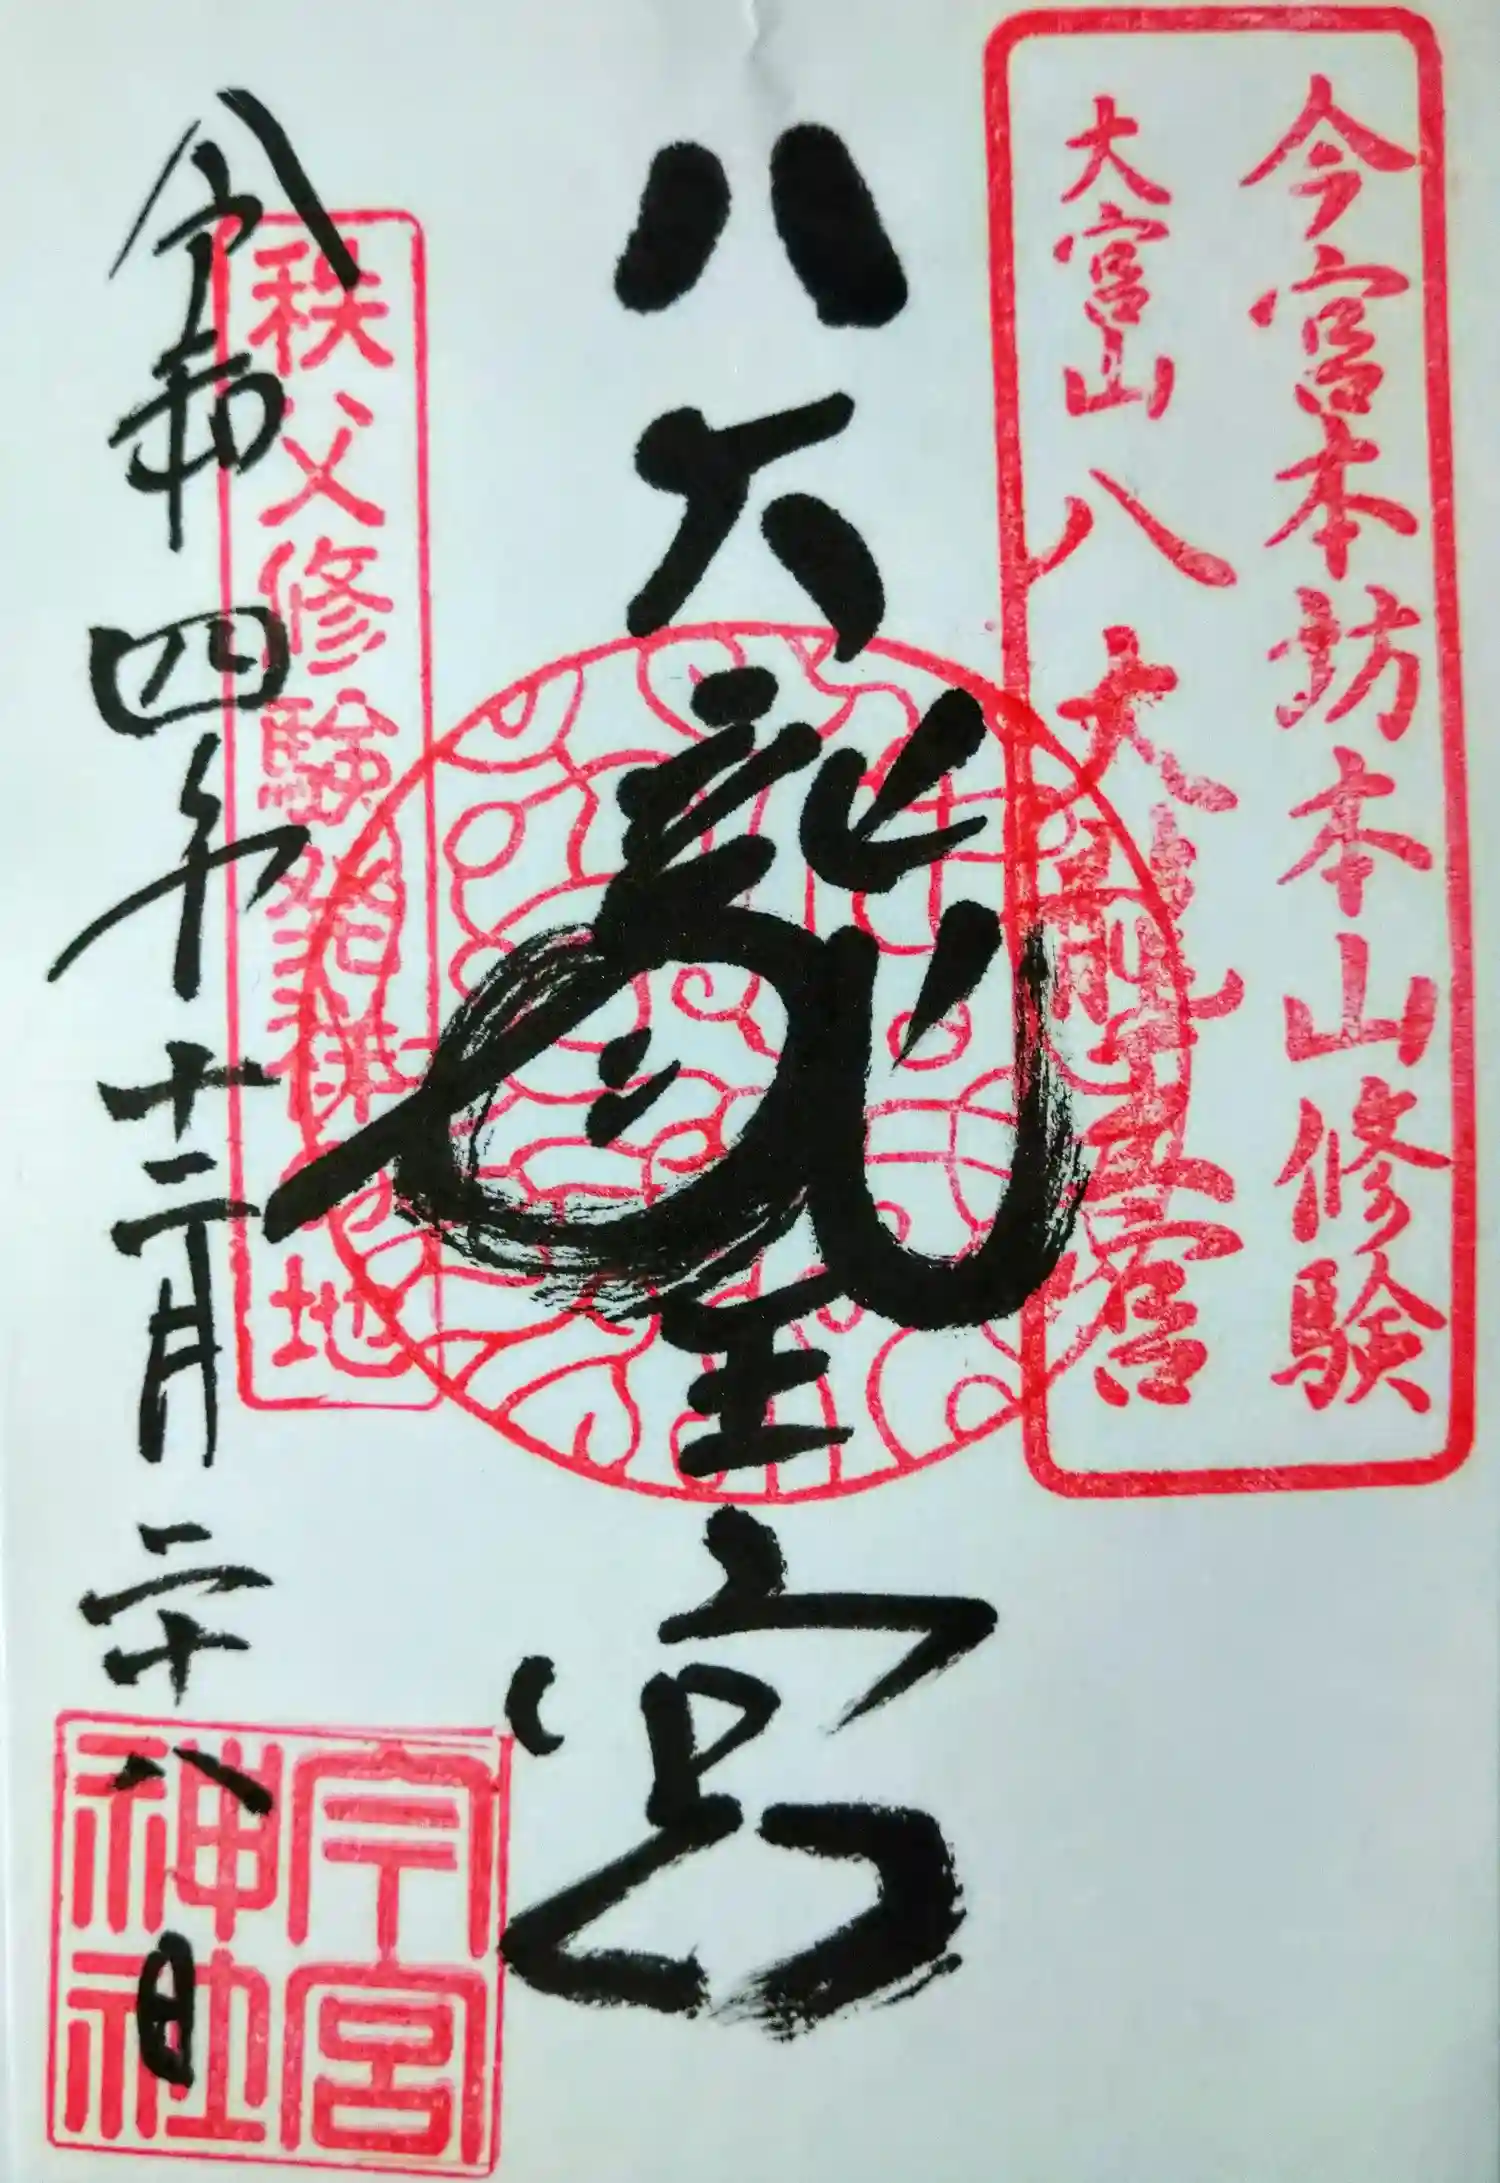 今宮本坊本山修験
大宮山
八大龍王宮
八大龍王宮
秩父修験発祥の地
令和四年十二月二十八日
今宮
神社